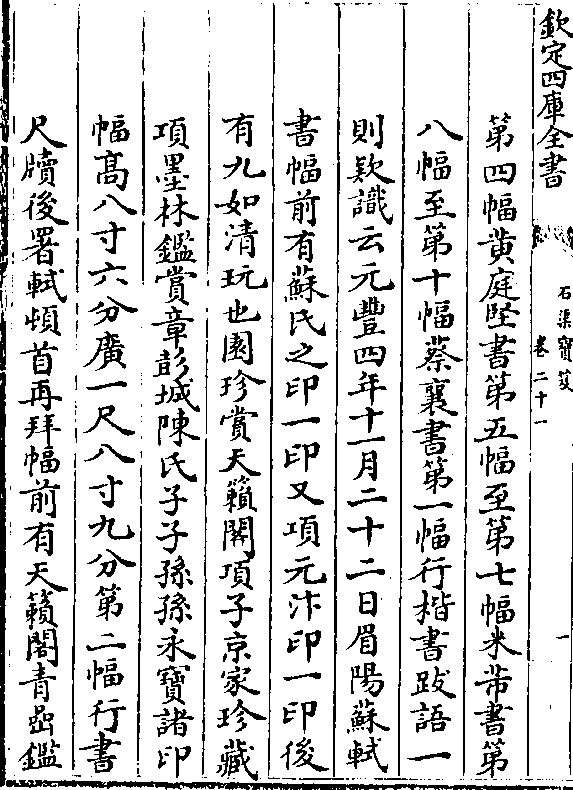 欽定四庫全書
石渠寶笈
卷二十一
一
第四幅黄庭堅書第五幅至第七幅米芾書第
八幅至第十幅蔡襄書第一幅行楷書跋語一
則欵識云元豐四年十一月二十二日眉陽蘇軾
書幅前有蘇氏之印一印又項元汴印一印後
有九如清玩也園珍賞天籟閣項子京家珍藏
項墨林鑑賞章彭城陳氏子子孫孫永寶諸印
幅高八寸六分廣一尺八寸九分第二幅行書
尺牘後署軾頓首再拜幅前有天籟閣青嵒鑑